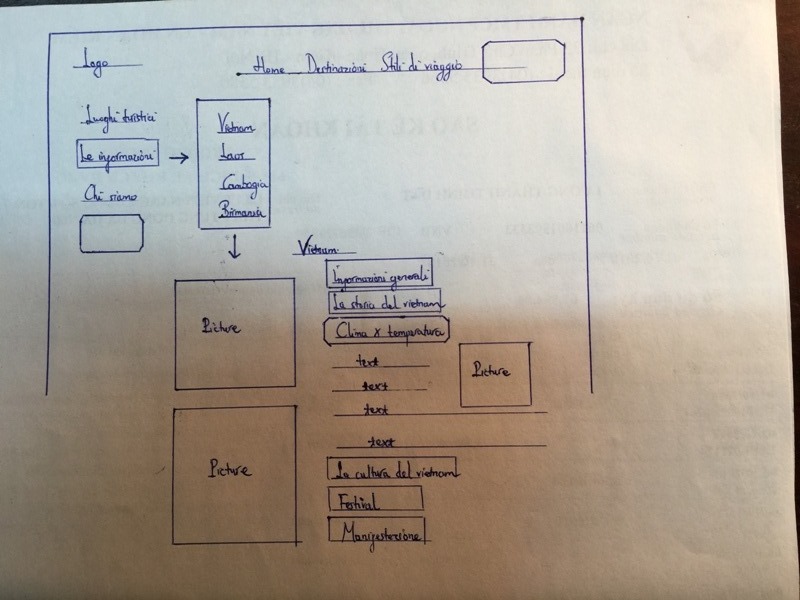 Logo
Home Destinazioni Stili di viaggio
Luoghi turistici
Le informazioni
Chi siamo
Vietnam
Laos
Cambogia
Birmania
Vietnam
Informazioni generali
La storia del vietnam
Clima x temperatura
text
text
text
text
Picture
Picture
Picture
La cultura del vietnam
Festival
Manifestazione